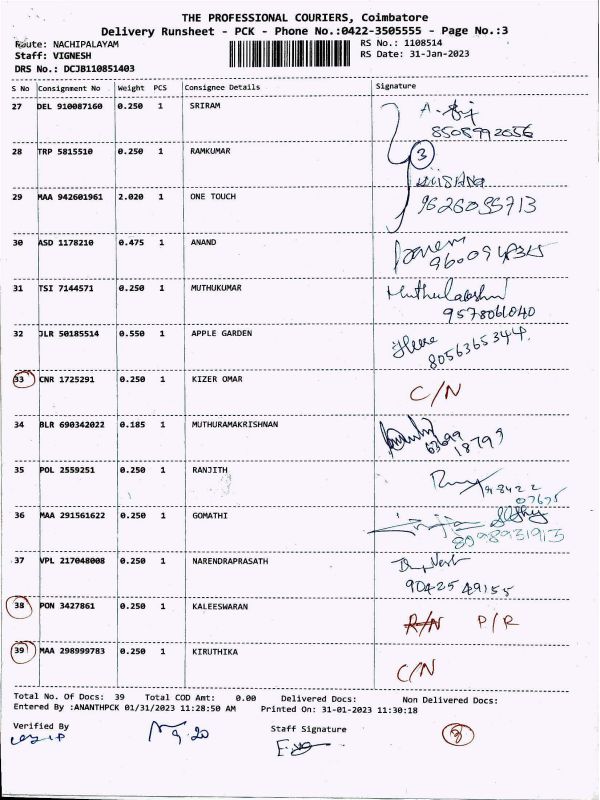 THE PROFESSIONAL COURIERS, Coimbatore
Delivery Runsheet - PCK - Phone No.:0422-3505555 - Page No.:3
Route: NACHIPALAYAM RS No.: 1108514
Staff: VIGNESH RS Date: 31-Jan-2023
DRS No.: DCJB110851403
S No Consignment No Weight PCS Consignee Details Signature
27 DEL 910087160 0.250 1 SRIRAM
8508992056
28 TRP 5815510 0.250 1 RAMKUMAR 3
29 MAA 942601961 2.020 1 ONE TOUCH
30 ASD 1178210 0.475 1 ANAND
31 TSI 7144571 0.250 1 MUTHUKUMAR Muthulakshmi
9578061040
32 JLR 50185514 0.550 1 APPLE GARDEN
8056365344
33 CNR 1725291 0.250 1 KIZER OMAR C/N
34 BLR 690342022 0.185 1 MUTHURAMAKRISHNAN
63699
18799
35 POL 2559251 0.250 1 RANJITH
36 MAA 291561622 0.250 1 GOMATHI
8098931913
37 VPL 217048008 0.250 1 NARENDRAPRASATH
90425 49155
38 PON 3427861 0.250 1 KALEESWARAN R/N P/R
39 MAA 298999783 0.250 1 KIRUTHIKA C/N
Total No. Of Docs: 39 Total COD Amt: 0.00 Delivered Docs: Non Delivered Docs:
Entered By :ANANTHPCK 01/31/2023 11:28:50 AM Printed On: 31-01-2023 11:30:18
Verified By Staff Signature
9.20